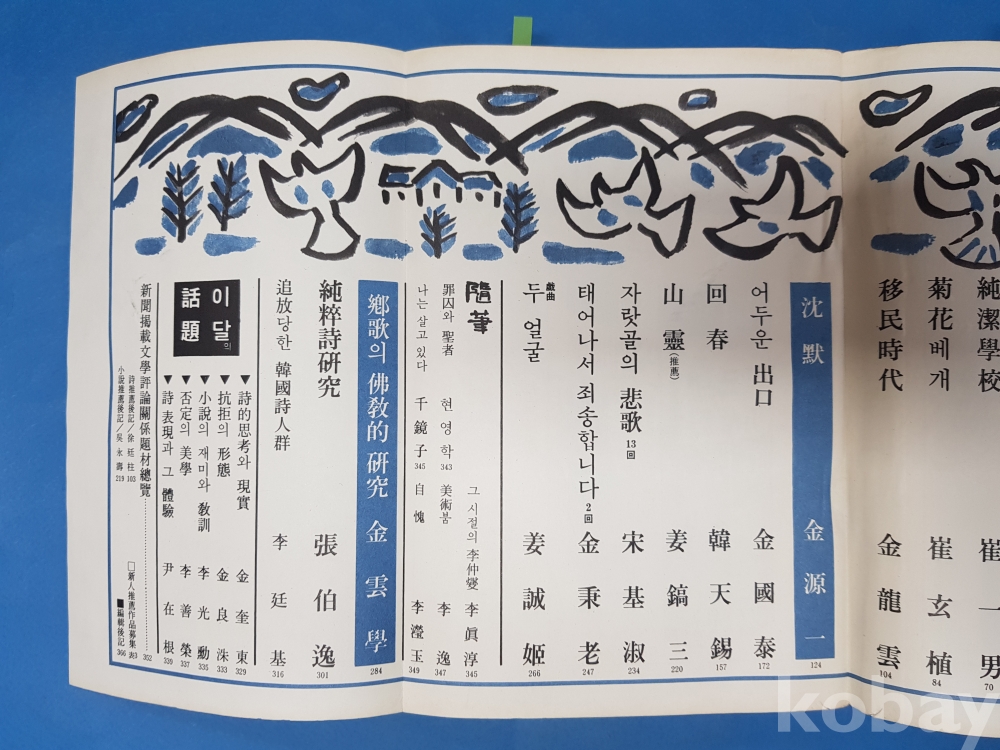 純潔學校 崔一男 70
菊花베개 崔玄植 84
移民時代 金龍雲 104
沈默 金源一 124
어두운 出口 金國泰 172
回春 韓天錫 157
山靈(推薦) 姜鎬三 220
자랏골의 悲歌 13回 宋基淑 234
태어나서 죄송합니다 2回 金秉老 247
戱曲
두 얼굴 姜誠姬 266
隨筆
그 시절의 李仲燮 李眞淳 345
罪囚와 聖者 현영학 343
美術붐 李逸 347
나는 살고 있다 千鏡子 345
自愧 李瀅玉 349
鄕歌의 佛敎的 硏究 金雲學 284
純粹詩硏究 張伯逸 301
追放당한 韓國詩人群 李廷基 316
이달의
話題
▼詩的思考와 現實 金奎東 329
▼抗拒의 形態 金良洙 333
▼小說의 재미와 敎訓 李光勳 335
▼否定의 美學 李善榮 337
▼詩 表現과 그 體驗 尹在根 339
新聞揭載文學評論關係題材總覽 352
詩推薦後記/徐廷柱 103
小說推薦後記/吳永壽 219
□新人推薦作品募集 表3
■編輯後記 366
kobay